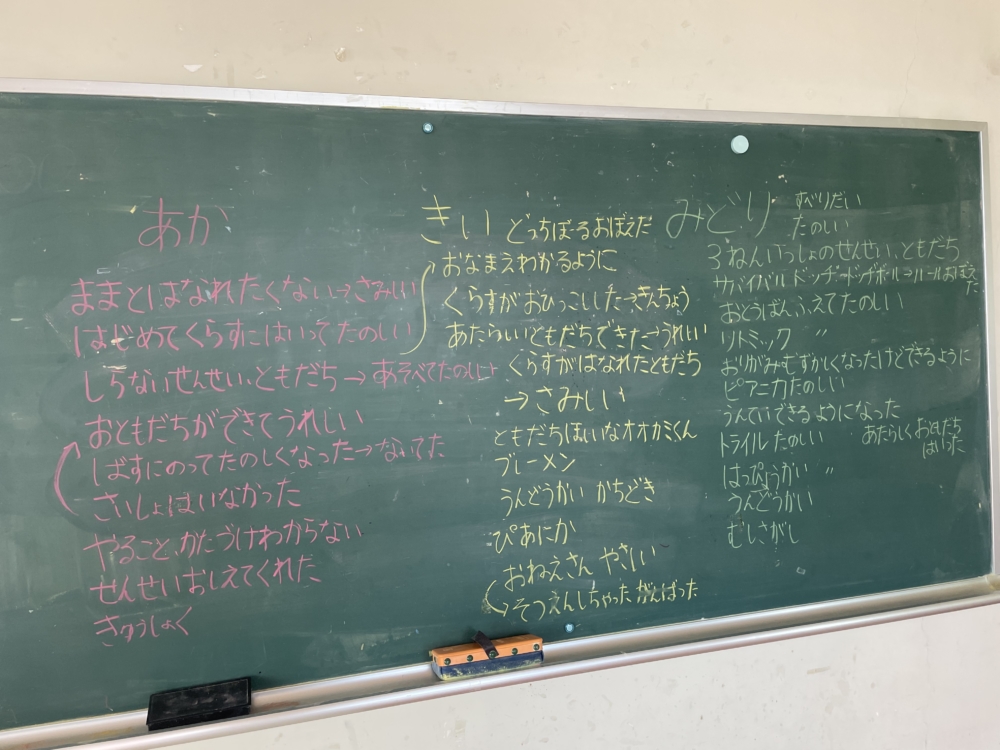 あか
ままとはなれたくない→さみしい
はじめてくらすにはいってたのしい
しらないせんせい、ともだち→あそべてたのしい
おともだちができてうれしい
ばすにのってたのしくなった→ないてた
さいしょはいなかった
やること、かたづけわからない
せんせいおしえてくれた
きゅうしょく
きい
どっちぼーるおぼえた
おなまえわかるように
くらすがおひっこしした→きんちょう
あたらしいともだちできた→うれしい
くらすがはなれたともだち
→さみしい
ともだちほしいなオオカミくん
ブレーメン
うんどうかい かちどき
ぴあにか
おねえさん やさしい
そつえんしちゃった がんばった
みどり
すべりだい
たのしい
3ねんいっしょのせんせい、ともだち
サバイバルドッヂ・ドッヂボール→ルールおぼえ
た
おとうばんふえてたのしい
リトミック 〃
おりがみむずかしくなったけどできるように
ピアニカたのしい
うんていできるようになった
トライルたのしい
あたらしくおともだち
はいった
はっぴょうかい 〃
うんどうかい
むしさがし